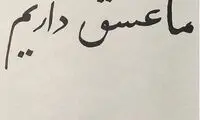 ما عسق داریم